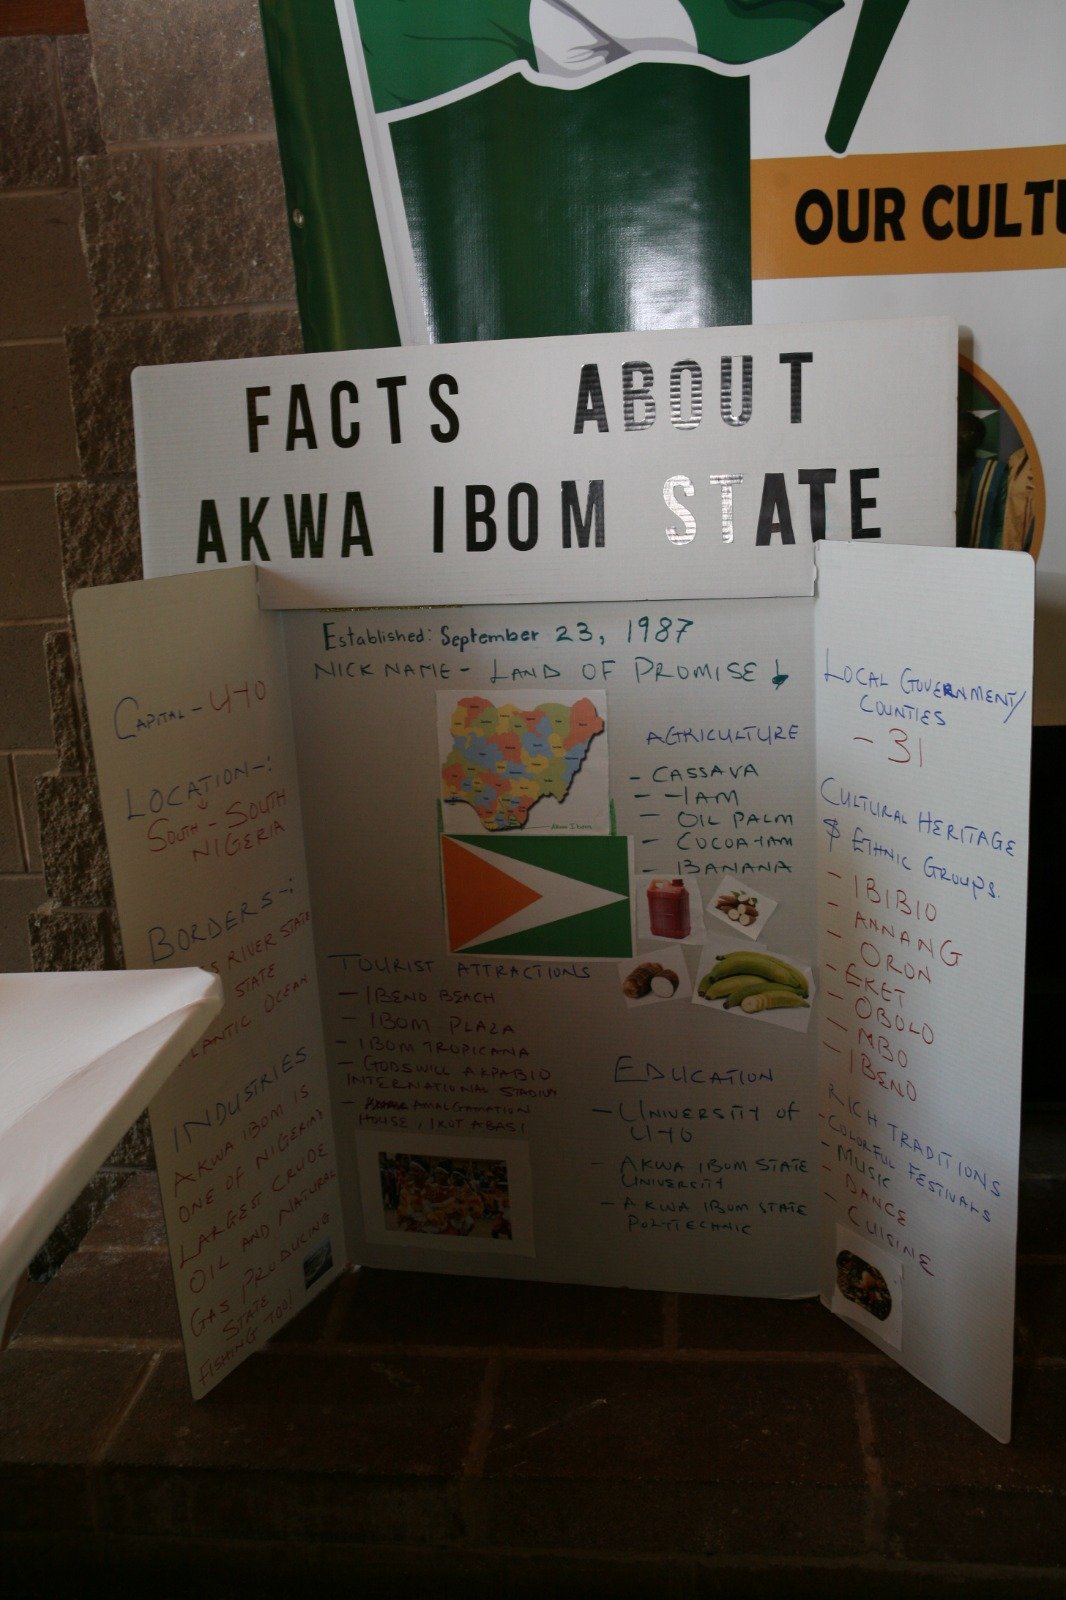 OUR CULTU
FACTS ABOUT
AKWA IBOM STATE
Established: September 23, 1987
NICKNAME - LAND OF PROMISE
CAPITAL - UYO
LOCATION -:
SOUTH - SOUTH
NIGERIA
BORDERS -:
RIVER STATE
STATE
OCEAN
INDUSTRIES
AKWA IBOM IS
ONE OF NIGERIA'S
LARGEST CRUDE
OIL AND NATURAL
GAS PRODUCING
STATE
FISHING TOO!
Akwa Ibom
AGRICULTURE
- CASSAVA
- YAM
- OIL PALM
- COCOAYAM
- BANANA
TOURIST ATTRACTIONS
- IBENO BEACH
- IBOM PLAZA
- IBOM TROPICANA
- GODSWILL AKPABIO
INTERNATIONAL STADIUM
- AMALGAMATION
HOUSE, IKOT ABASI
EDUCATION
- UNIVERSITY OF
UYO
- AKWA IBOM STATE
UNIVERSITY
- AKWA IBOM STATE
POLYTECHNIC
LOCAL GOVERNMENT/
COUNTIES
- 31
CULTURAL HERITAGE
$ ETHNIC GROUPS.
- IBIBIO
- ANNANG
- ORON
- EKET
- OBOLO
- MBO
- IBENO
RICH TRADITIONS
- COLORFUL FESTIVALS
- MUSIC
- DANCE
- CUISINE